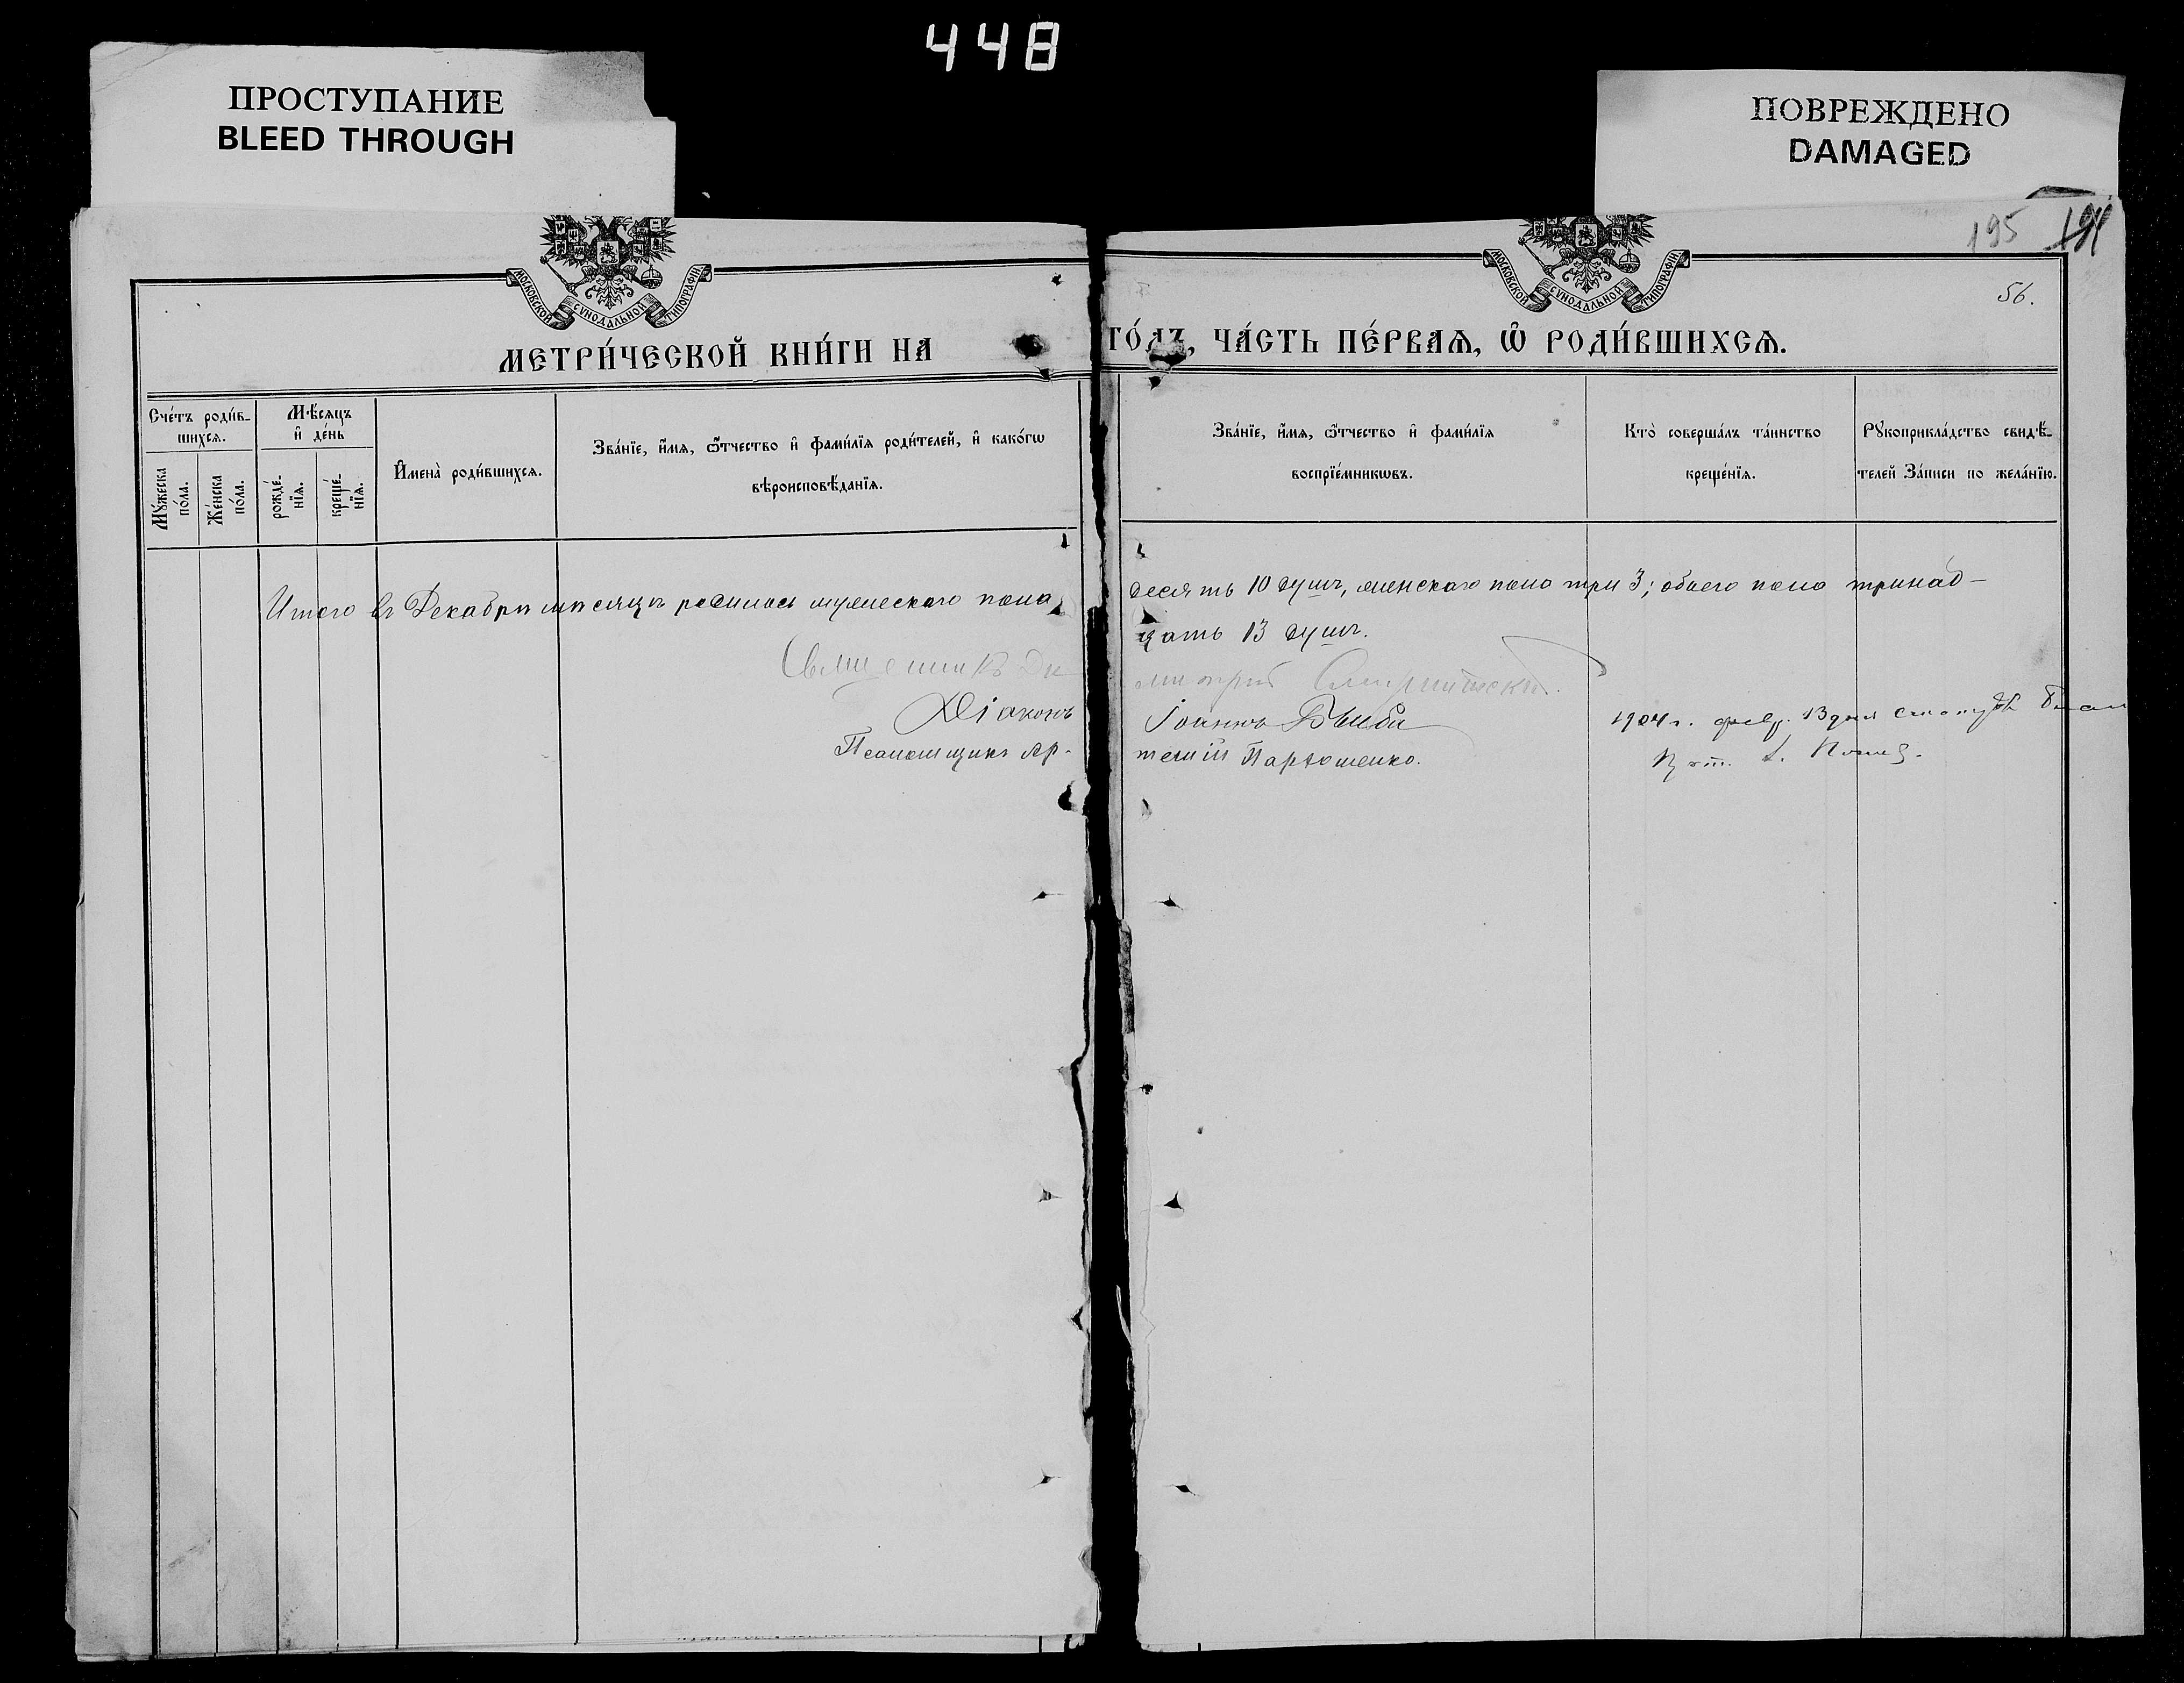 448
ПРОСТУПАНИЕ
BLEED THROUGH
ПОВРЕЖДЕНО
DAMAGED
195 194
56.
МОСКОВСКОЙ СѴНОДАЛЬНОЙ ТИПОГРАФІИ
МОСКОВСКОЙ СѴНОДАЛЬНОЙ ТИПОГРАФІИ
МЕТРИ́ЧЕСКОЙ КНИ́ГИ НА ГО́ДЪ, ЧА́СТЬ ПЕ́РВАѦ, Ѽ РОДИ́ВШИХСѦ.
Сче́тъ роди́в-
шихсѧ.
Мꙋ́жеска
по́ла.
Же́нска
по́ла.
Мѣ́сѧцъ
и҆ де́нь
рожде́-
нїѧ.
креще́-
нїѧ.
И҆мена̀ роди́вшихсѧ.
Зва́нїе, и҆́мѧ, ѻ҆́тчество и҆ фами́лїѧ роди́телей, и҆ како́гѡ
вѣроисповѣ́данїѧ.
Зва́нїе, и҆́мѧ, ѻ҆́тчество и҆ фами́лїѧ
воспрїе́мникѡвъ.
Кто̀ соверша́лъ та́инство
креще́нїѧ.
Рꙋкоприкла́дство свидѣ́-
телей За́писи по жела́нїю.
Итого въ Декабрѣ мѣсяцѣ родилось мужескаго пола десять 10 душъ, женскаго пола три 3; обоего пола тринад-
цать 13 душъ.
Священникъ Ди митрій
Діаконъ Іоаннъ
Псаломщикъ Ар- темій Пархоменко.
1904 г. февр. 13 дня